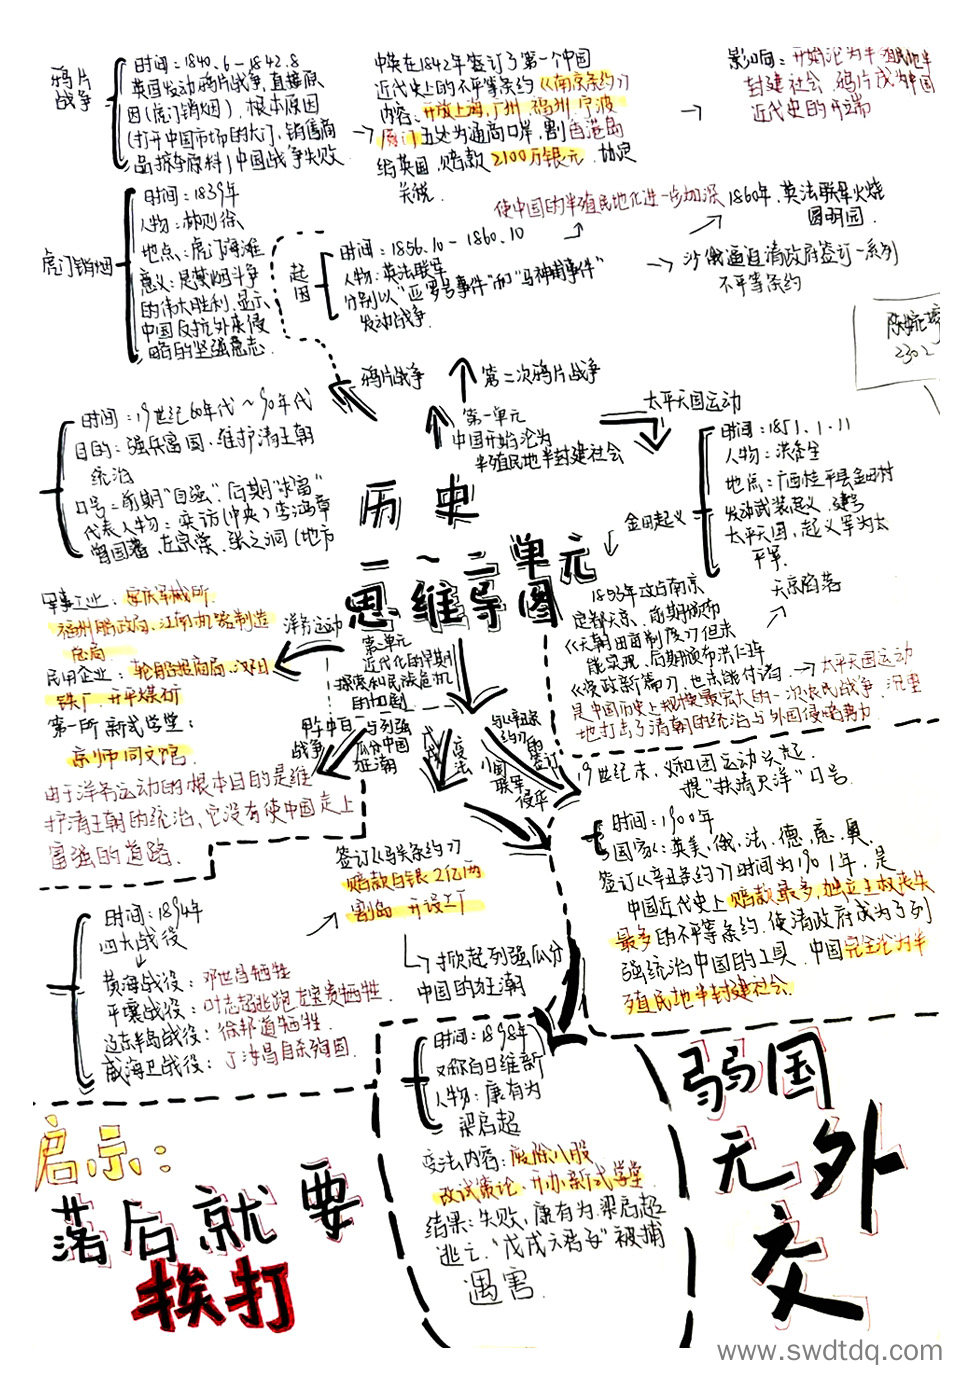 鸦片
战争
时间：1840.6-1842.8
英国发动鸦片战争,直接原
因(虎门销烟)．根本原因
(打开中国市场的大门,销售商
品掠夺原料)中国战争失败
中英在1842年签订了第一个中国
近代史上的不平等条约《南京条约》
内容：开放上海,广州,福州,宁波
厦门五处为通商口岸,割香港岛
给英国,赔款2100万银元．协定
关税．
影响：开始沦为半殖民地半
封建社会．鸦片成为中国
近代史的开端
虎门销烟
时间：1839年
人物：林则徐
地点：虎门海滩
意义：是禁烟斗争
的伟大胜利,显示
中国反抗外来侵
略的坚强意志．
起因
时间：1856.10-1860.10
人物：英法联军
分别以"亚罗号事件"而"马神甫事件"
发动战争．
使中国的半殖民地化进一步加深
1860年．英法联军火烧
圆明园．
沙俄逼迫清政府签订一系列
不平等条约
2302
鸦片战争
第二次鸦片战争
太平天国运动
第一单元
中国开始沦为
半殖民地半封建社会
时间：19世纪60年代～90年代
目的：强兵富国．维护清王朝
统治
口号：前期"自强"．后期"求富"
代表人物：奕訢(中央)李鸿章
曾国藩,左宗棠．张之洞(地方
时间：1851.1.11
人物：洪秀全
地点：广西桂平县金田村
发动武装起义．建号
太平天国,起义军为太
平军．
金田起义
历史
一～二单元
思维导图
天京陷落
定都天京．前期颁布
《天朝田亩制度》但未
能实现．后期颁布洪仁玕
《资政新篇》,也未能付诸．
太平天国运动
是中国历史上规模最宏大的一次农民战争．沉重
地打击了清朝的统治与外国侵略势力．
军事工业：安庆军械所．
福州船政局,江南机器制造
总局．
民用企业：轮船招商局,汉阳
铁厂．开平煤矿
第一所新式学堂：
京师同文馆．
由于洋务运动的根本目的是维
护清王朝的统治,它没有使中国走上
富强的道路．
洋务运动
第二单元
近代化的早期
探索和民族危机
的加剧
甲午中日
战争
与列强
瓜分中国
狂潮
戊戌变法
八国联军侵华
与《辛丑条约》的签订
19世纪末,义和团运动兴起．
提"扶清灭洋"口号．
时间：1900年
国家：英美,俄,法,德,意,奥,
签订《辛丑条约》时间为1901年,是
中国近代史上赔款最多,独立主权丧失
最多的不平等条约．使清政府成为了列
强统治中国的工具．中国完全沦为半
殖民地半封建社会．
签订《马关条约》
赔款白银2亿两
割岛．开设工厂
掀起列强瓜分
中国的狂潮
时间：1894年
四大战役
黄海战役：邓世昌牺牲
平壤战役：叶志超逃跑左宝贵牺牲．
辽东半岛战役：徐邦道牺牲．
威海卫战役：丁汝昌自杀殉国．
时间：1898年
又称百日维新
人物：康有为
梁启超
变法内容：废除八股
改试策论．开办新式学堂
结果：失败,康有为．梁启超
逃亡．"戊戌六君子"被捕
遇害．
启示：
落后就要
挨打
弱国
无外
交
www.swdtdq.com